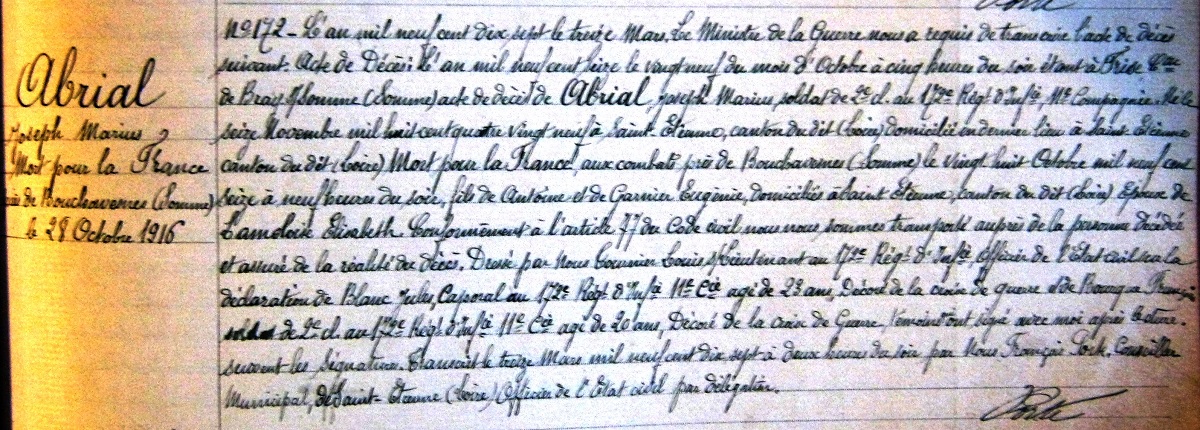 Abrial
Joseph Marius
Mort pour la France
près de Bouchavesnes (Somme)
le 28 Octobre 1916
N° 172 - L'an mil neuf cent dix sept le treize Mars. Le Ministre de la Guerre nous a requis de transcrire l'acte de décès
suivant. Acte de Décès: L'an mil neuf cent seize le vingt neuf du mois d'Octobre à cinq heures du soir étant à Frise
de Bray s/Somme (Somme) acte de décès de Abrial, Joseph Marius, soldat de 2e cl. au 172e Régt d'Infie, 11e Compagnie. Né le
seize Novembre mil huit cent quatre vingt neuf à Saint-Etienne, canton du dit (Loire) domicilié en dernier lieu à Saint Etienne
canton du dit (Loire) "Mort pour la France", aux combats près de Bouchavesnes (Somme) le vingt huit Octobre mil neuf cent
seize à neuf heures du soir, fils de Antoine et de Garnier Eugénie, domiciliés à Saint Etienne, canton du dit (Loire) Epoux de
Elisabeth. Conformément à l'article 77 du Code civil nous nous sommes transporté auprès de la personne décédée
et assuré de la réalité du décès. Dressé par Nous Louis s/Lieutenant au 172e Régt d'Infie Officier de l'Etat civil sur la
déclaration de Blanc Jules, Caporal au 172e Régt d'Infie 11e Cie agé de 23 ans, Décoré de la croix de guerre et de
soldat de 2e cl. au 172e Régt d'Infie 11e Cie agé de 20 ans, Décoré de la croix de Guerre, témoins ont signé avec moi après lecture.
suivent les signatures. Transcrit le treize Mars mil neuf cent dix sept à deux heures du soir par Nous François Conseiller
Municipal, de Saint-Etienne (Loire) Officier de l'Etat civil par délégation.